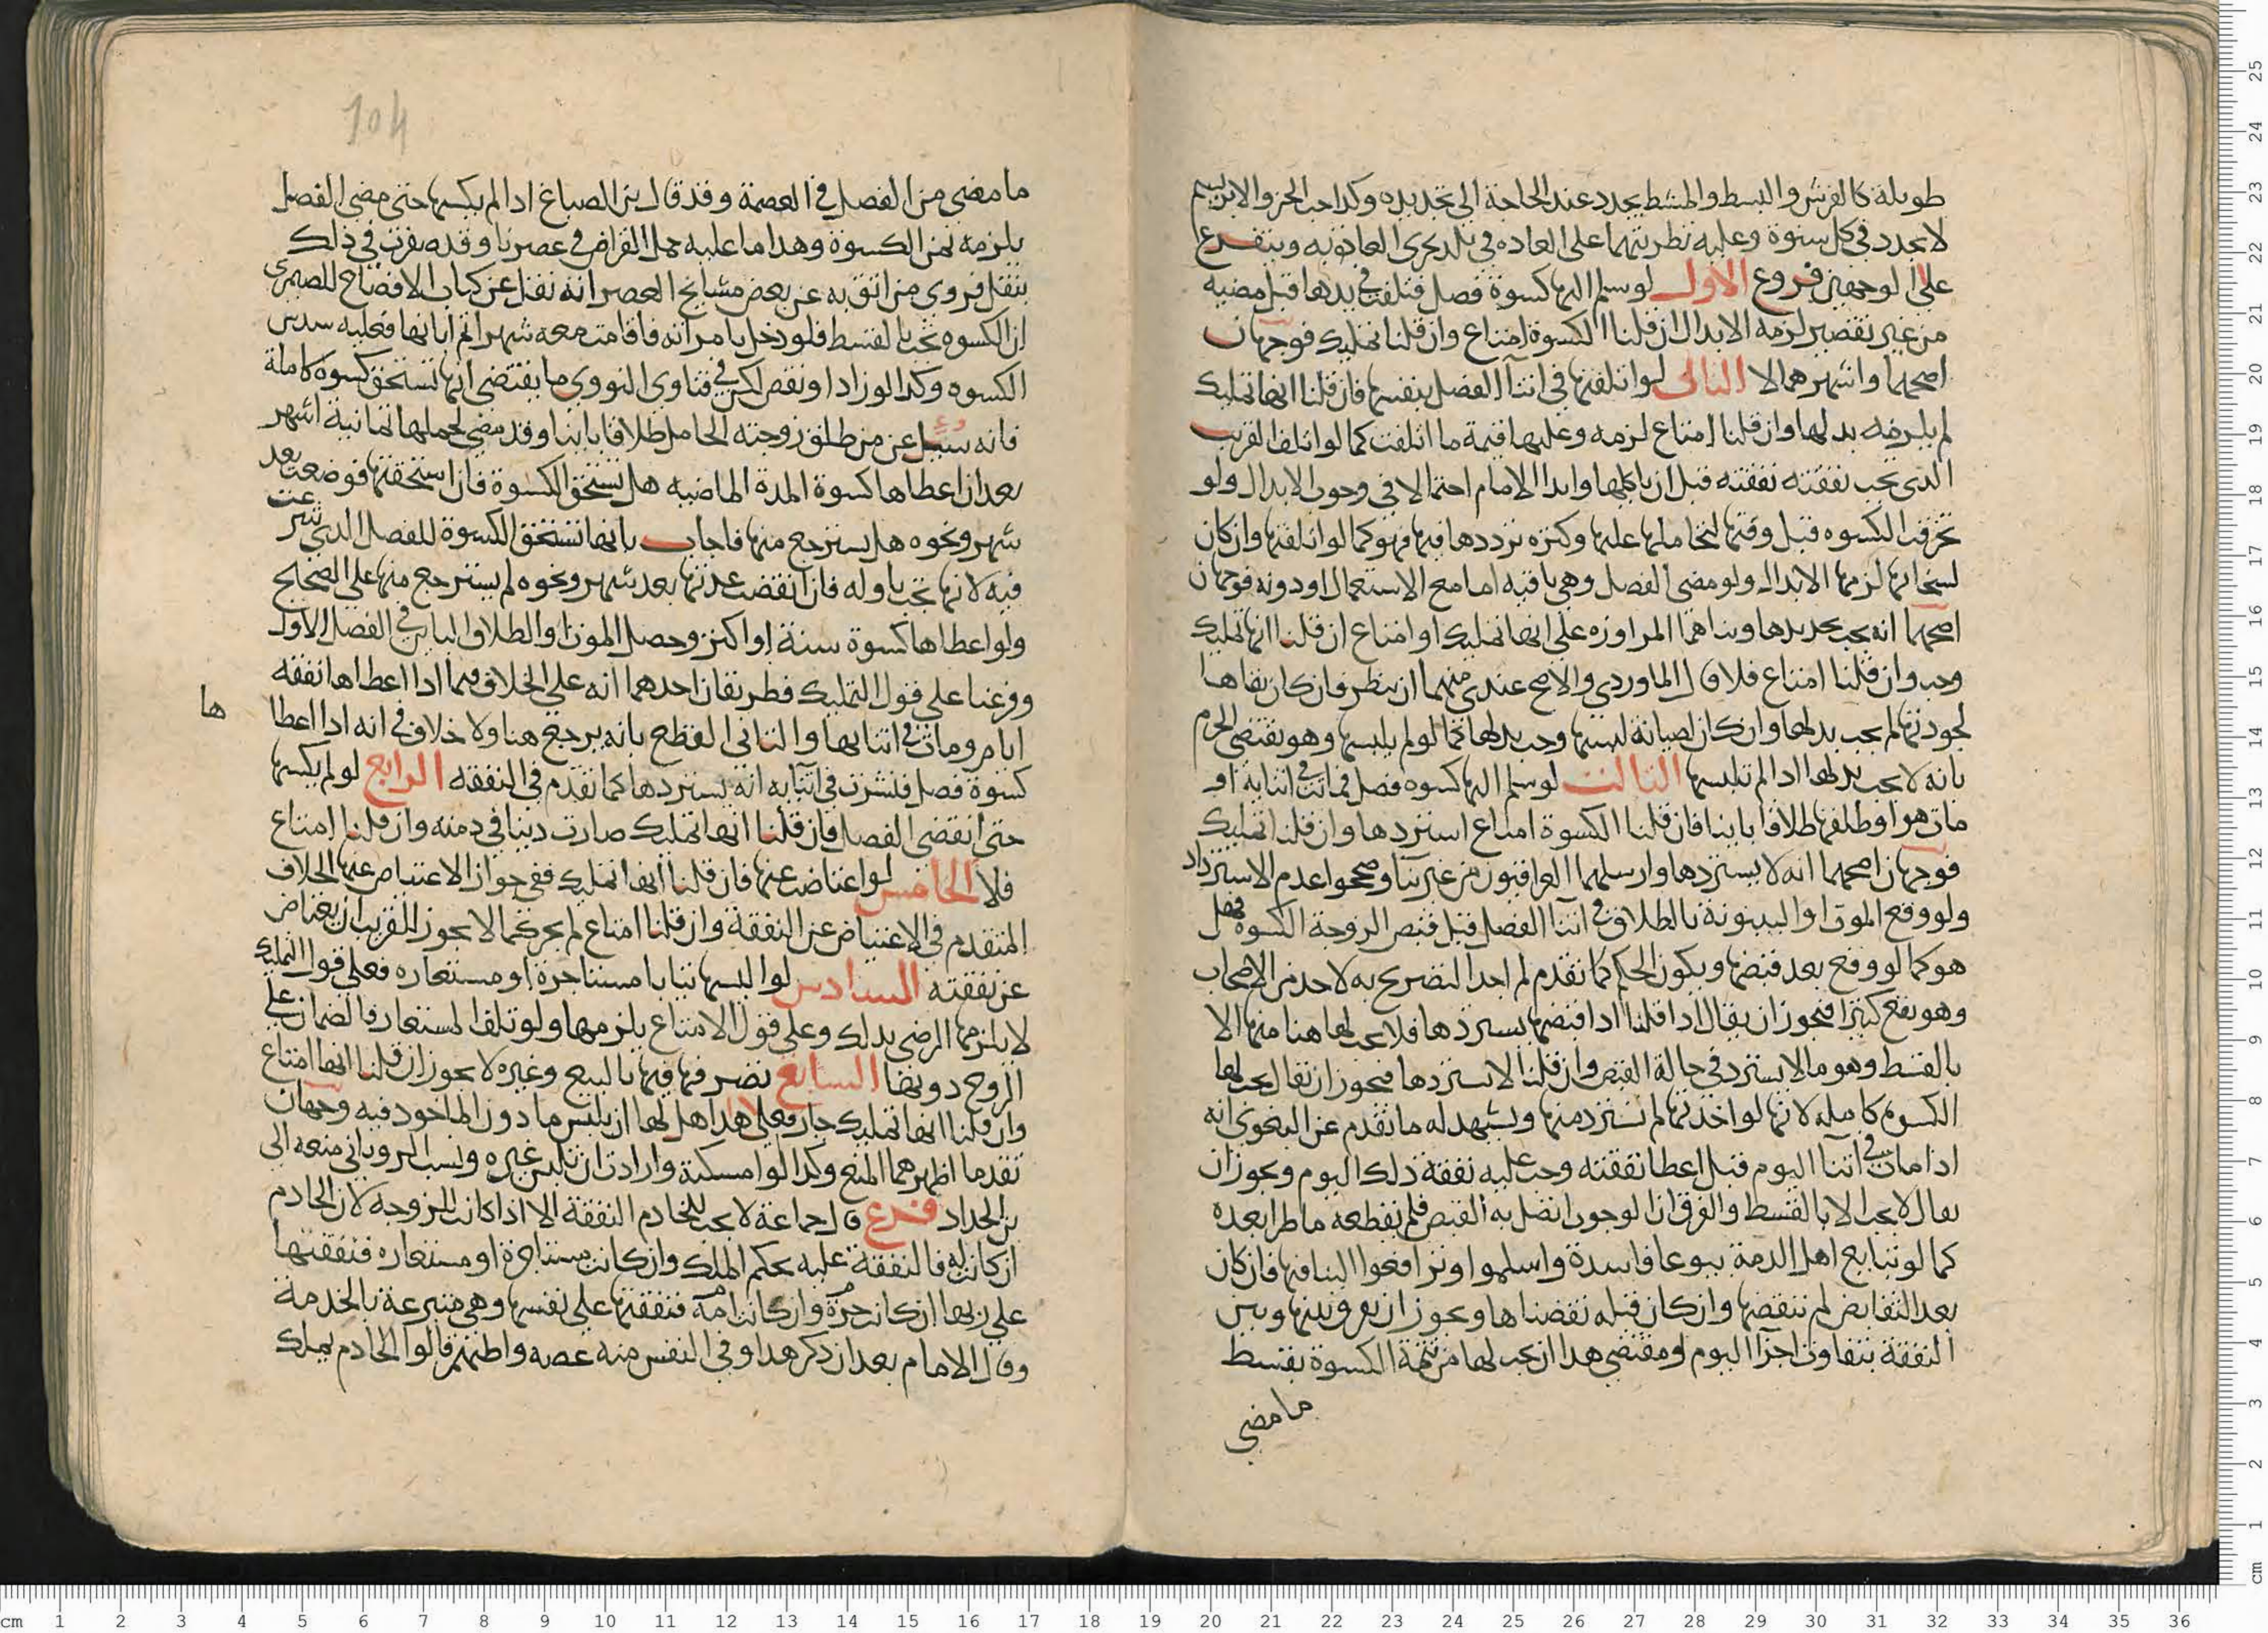 طويلة كالفرش والبسط والمشط يجدد عند الحاجة الى تجديده وكذا جبة الخز والابريسم
لا تجدد في كل شتوة وعليه تطريتهما على العاده في بلد يجري العادة به ويتفرع
على الوجهين فروع الاول لو سلم اليها كسوة فصل فتلفت في يدها قبل مضيه
من غير تقصير لزمه الابدال ان قلنا الكسوة امتاع وان قلنا تمليك فوجهان
اصحهما واشهرهما لا الثاني لو اتلفتها في اثنآ الفصل بنفسها فان قلنا انها تمليك
لم يلزمه بدلها وان قلنا امتاع لزمه وعليها قيمة ما اتلفت كما لو اتلف القريب
الذي تجب نفقته نفقته قبل ان ياكلها وابدا الامام احتمالا في وجوب الابدال ولو
تخرقت الكسوه قبل وقتها لتحاملها عليها وكثرة ترددها فيها فهو كما لو اتلفتها وان كان
لسخافتها لزمها الابدال ولو مضى الفصل وهي باقيه اما مع الاستعمال او دونه فوجهان
اصحهما انه يجب تجديدها وبناهما المراوزه على انها تمليك او امتاع ان قلنا انها تمليك
وجب وان قلنا امتاع فلا قال الماوردي والاصح عندي منهما ان ينظر فان كان بقاها
لجودتها لم يجب بدلها وان كان لصيانة لبسها وجب بدلها كما لو لم يلبسها وهو يقتضي الجزم
بانه لا يجب بدلها اذا لم تلبسها الثالث لو سلم اليها كسوه فصل فماتت في اثنايه او
مات هو او طلقها طلاقا باينا فان قلنا الكسوة امتاع استردها وان قلنا تمليك
فوجهان اصحهما انه لا يستردها وارسلهما العراقيون من غير بنآ وصححوا عدم الاسترداد
ولو وقع الموت او البينونة بالطلاق في اثنآ الفصل قبل قبض الزوجة الكسوة فهل
هو كما لو وقع بعد قبضها ويكون الحكم كما تقدم لم اجد التصريح به لاحد من الاصحاب
وهو يقع كثيرا فيجوز ان يقال اذا قلنا اذا قبضها يستردها فلا يجب لها هنا منها الا
بالقسط وهو ما لا يسترد في حالة القبض وان قلنا لا يستردها فيجوز ان يقال يجب لها
الكسوة كامله لانها لو اخذتها لم تسترد منها ويشهد له ما تقدم عن البغوي انه
اذا مات في اثنا اليوم قبل اعطا نفقته وجب عليه نفقة ذلك اليوم ويجوز ان
يقال لا يجب الا بالقسط والفرق ان الوجوب اتصل به القبض فلم يقطعه ما طرا بعده
كما لو تبايع اهل الذمة بيوعا فاسدة واسلموا او ترافعوا الينا فيها فان كان
بعد التقابض لم ننقضها وان كان قبله نقضناها ويجوز ان يفرق بينها وبين
النفقة بتفاوت اجزآ اليوم ومقتضى هذا ان يجب لها من قيمة الكسوة بقسط
ما مضى
104
ما مضى من الفصل في العصمة وقد قال بن الصباغ اذا لم يكسها حتى مضى الفصل
يلزمه ثمن الكسوة وهذا ما عليه جمل القراض في عصرنا وقد صرت في ذلك
بنقل فروي من اثق به عن بعض مشايخ العصر انه نقل عن كتاب الافصاح للصيمري
ان الكسوه تجب بالقسط فلو دخل بامراته فاقامت معه شهرا ثم ابانها فعليه سدس
الكسوه وكذا لو زاد او نقص لكن في فتاوى النووي ما يقتضي انها تستحق كسوة كاملة
فانه سئل عن من طلق زوجته الحامل طلاقا باينا وقد مضى لحملها ثمانية اشهر
بعد ان اعطاها كسوة المدة الماضيه هل تستحق الكسوة فان استحقتها فوضعت بعد
شهر ونحوه هل يسترجع منها فاجاب بانها تستحق الكسوة للفصل الذي شرعت
فيه لانها تجب باوله فان انقضت عدتها بعد شهر ونحوه لم يسترجع منها على الصحيح
ولو اعطاها كسوة سنة او اكثر وحصل الموت او الطلاق الباين في الفصل الاول
وفرعنا على قول التمليك فطريقان احدهما انه على الخلاف فيما اذا اعطاها نفقه
ايام ومات في اثنايها والثاني القطع بانه يرجع هنا ولا خلاف في انه اذا اعطاها
كسوة فصل فنشزت في اثنآيه انه يستردها كما تقدم في النفقه الرابع لو لم يكسها
حتى انقضى الفصل فان قلنا انها تمليك صارت دينا في ذمته وان قلنا امتاع
فلا الخامس لو اعتاضت عنها فان قلنا انها تمليك ففي جواز الاعتياض عنها الخلاف
المتقدم في الاعتياض عن النفقة وان قلنا امتاع لم يجز كما لا يجوز للقريب ان يعتاض
عن نفقته السادس لو البسها ثيابا مستاجرة او مستعاره فعلى قول التمليك
لا يلزمها الرضى بذلك وعلى قول الامتاع يلزمها ولو تلف المستعار فالضمان على
الزوج دونها السابع تصرفها فيها بالبيع وغيره لا يجوز ان قلنا انها امتاع
وان قلنا انها تمليك جاز فعلى هذا هل لها ان تلبس ما دون الماخوذ فيه وجهان
تقدما اظهرهما المنع وكذا لو امسكته وارادت ان تلبس غيره ونسب الروياني منعه الى
بن الحداد فرع قال جماعة لا يجب للخادم النفقة الا اذا كانت للزوجه لان الخادم
ان كانت له فالنفقة عليه بحكم الملك وان كانت مستاجرة او مستعاره فنفقتها
على ربها ان كانت حرة وان كانت امة فنفقتها على نفسها وهي متبرعة بالخدمة
وقال الامام بعد ان ذكر هذا وفي النفس منه غصه واطنهم قالوا الخادم يملك